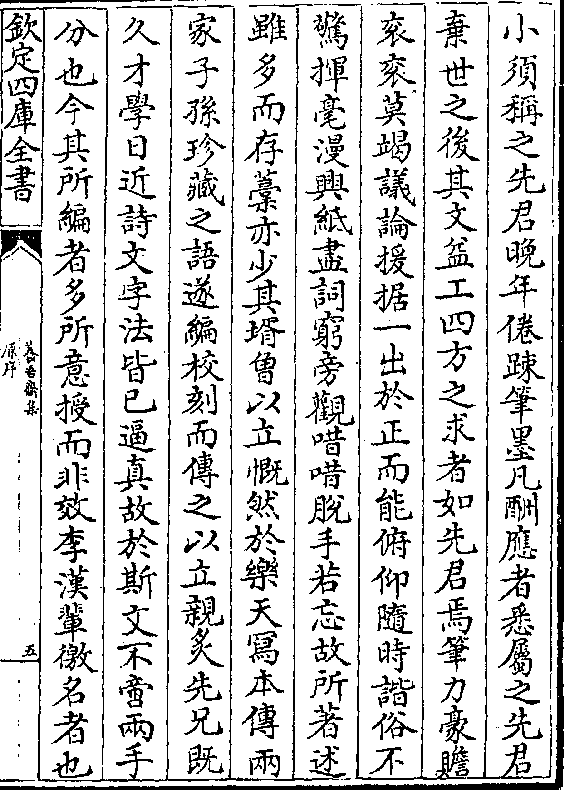 小須稱之先君晚年倦踈筆墨凡酬應者悉屬之先君
棄世之後其文益工四方之求者如先君焉筆力豪贍
衮衮莫竭議論援据一出於正而能俯仰隨時諧俗不
驚揮毫漫興紙盡詞窮旁觀唶唶脫手若忘故所著述
雖多而存藁亦少其壻曾以立慨然於樂天寫本傳兩
家子孫珍藏之語遂編校刻而傳之以立親炙先兄既
久才學日近詩文字法皆已逼真故於斯文不啻兩手
分也今其所編者多所意授而非效李漢輩徼名者也
欽定四庫全書
養吾齋集
原序
五